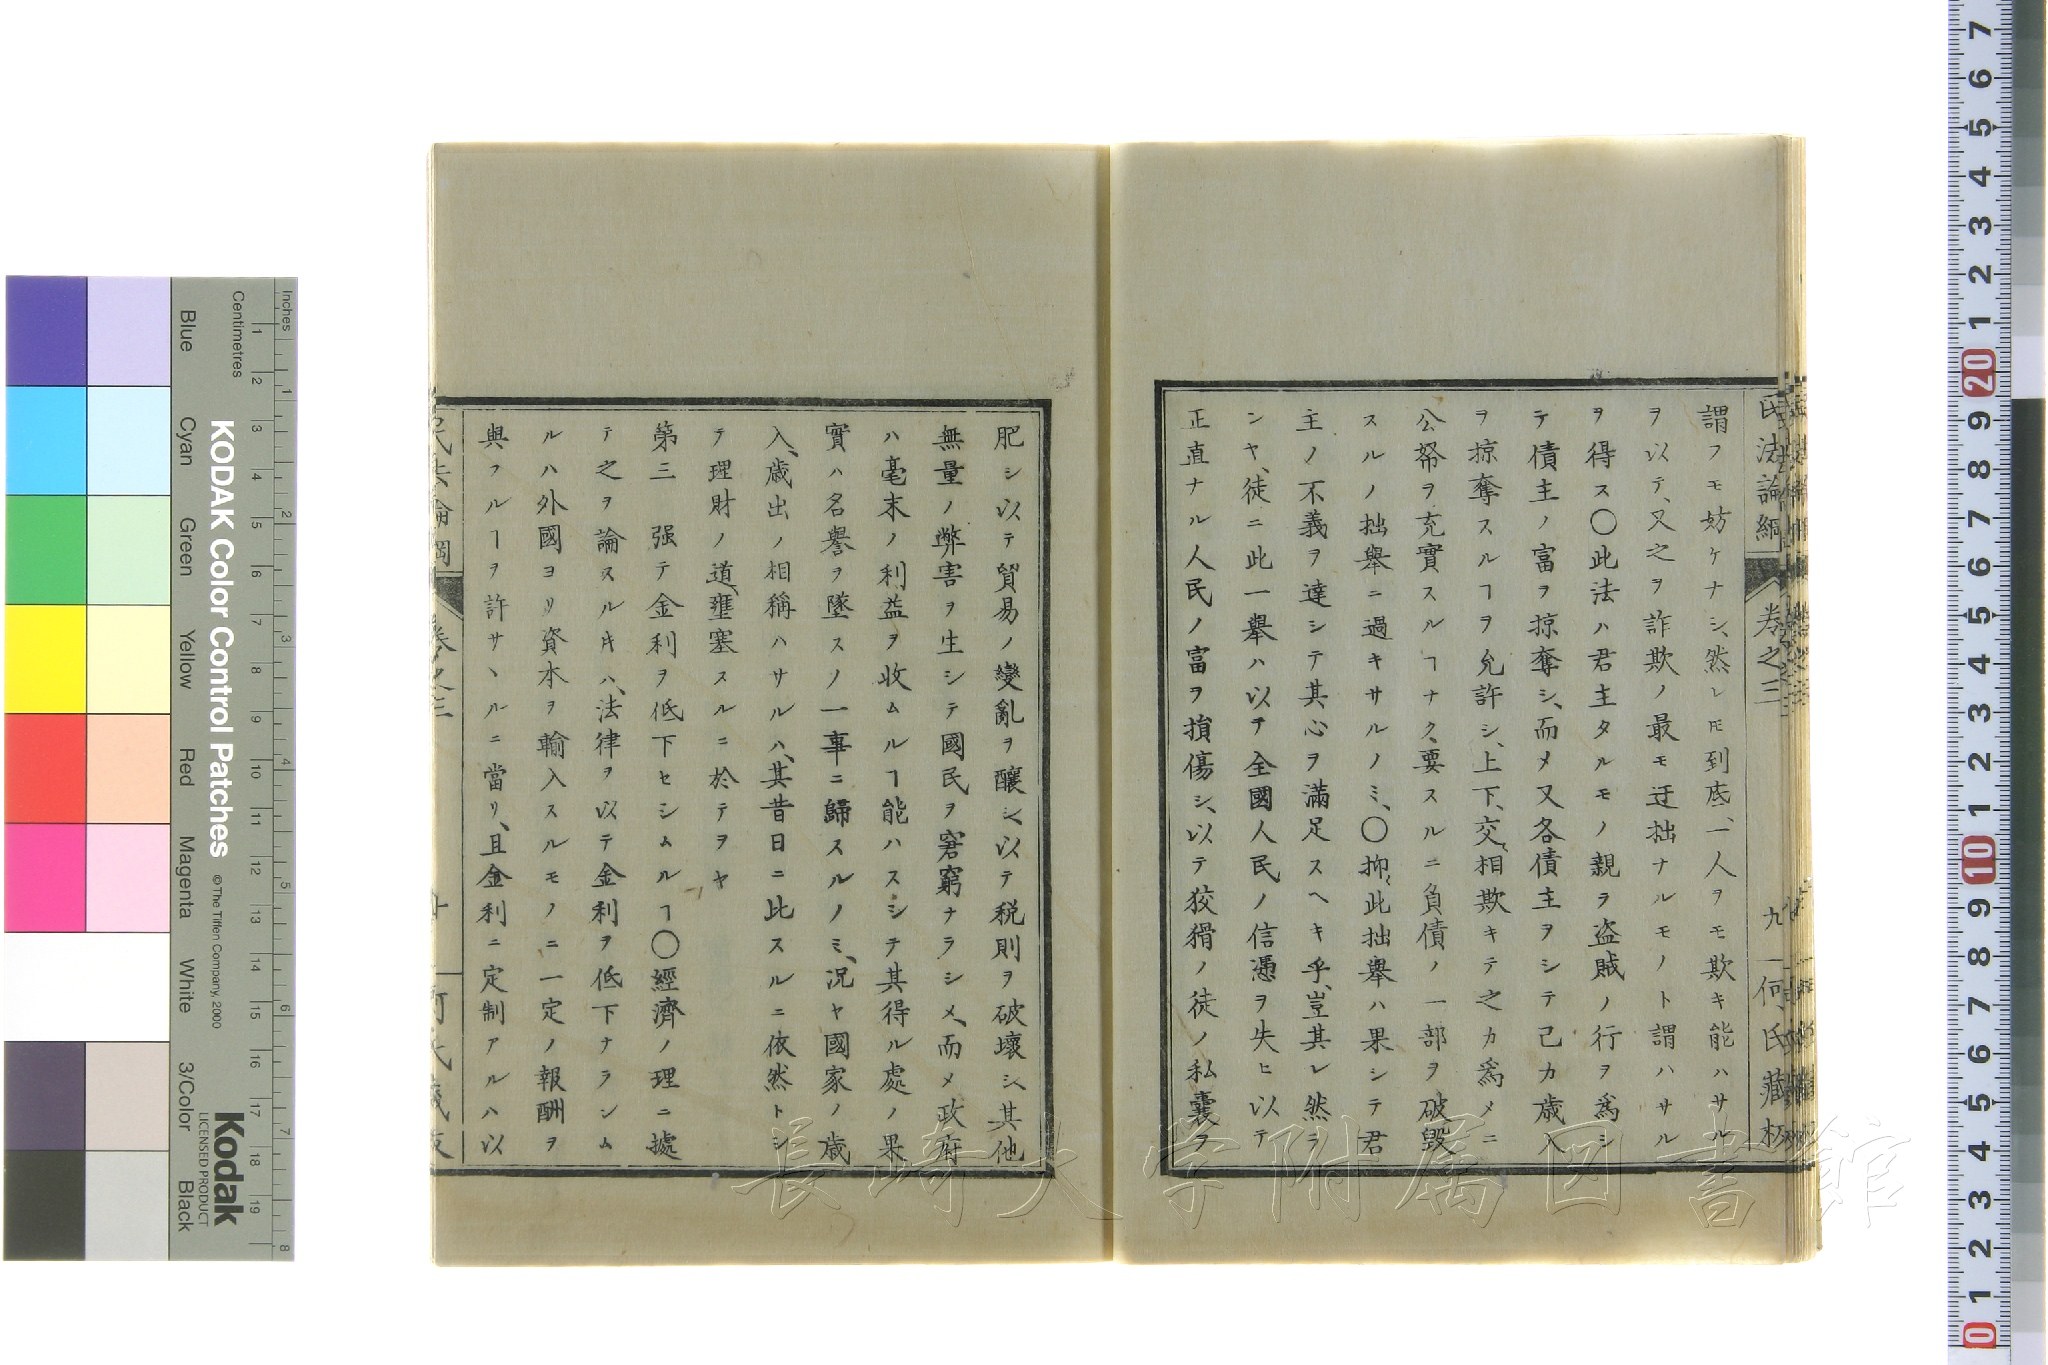 民法論綱
卷之三
九
何氏藏板
謂フモ妨ケナシ、然レ𪜈到底、一人ヲモ欺キ能ハサル
ヲ以テ、又之ヲ詐欺ノ最モ迂拙ナルモノト謂ハサル
ヲ得ス〇此法ハ君主タルモノ親ヲ盗賊ノ行ヲ爲シ
テ債主ノ富ヲ掠奪シ、而メ又各債主ヲシテ己カ歳入
ヲ掠奪スルヿヲ允許シ、上下、交〻相欺キテ之カ爲メニ
公帑ヲ充實スルヿナク、要スルニ負債ノ一部ヲ破毀
スルノ拙舉ニ過キサルノミ、〇抑〻此拙舉ハ果シテ君
主ノ不義ヲ達シテ其心ヲ滿足スヘキ乎、豈其レ然ラ
ンヤ、徒ニ此一舉ハ以テ全國人民ノ信憑ヲ失ヒ以テ
正直ナル人民ノ富ヲ損傷シ、以テ狡猾ノ徒ノ私囊ヲ
肥シ以テ貿易ノ變亂ヲ釀シ、以テ税則ヲ破壞シ、其他
無量ノ弊害ヲ生シテ國民ヲ窘窮ナラシメ、而メ政府
ハ毫末ノ利益ヲ收ムルヿ能ハスシテ其得ル處ノ果
實ハ名譽ヲ墜スノ一事ニ歸スルノミ、況ヤ國家ノ歳
入、歳出ノ相稱ハサルハ、其昔日ニ比スルニ依然トシ
テ理財ノ道、壅塞スルニ於テヲヤ
第三 强テ金利ヲ低下セシムルヿ〇經濟ノ理ニ據
テ之ヲ論スル𪜈ハ、法律ヲ以テ金利ヲ低下ナラシム
ルハ外國ヨリ資本ヲ輸入スルモノニ一定ノ報酬ヲ
與フルヿヲ許サヽルニ當リ、且金利ニ定制アルハ以
民法論綱
卷之三
十
何氏藏板
長崎大学附属図書館
KODAK Color Control Patches
© The Tiffen Company, 2000
Kodak
LICENSED PRODUCT
Inches
Centimetres
Blue
Cyan
Green
Yellow
Red
Magenta
White
3/Color
Black